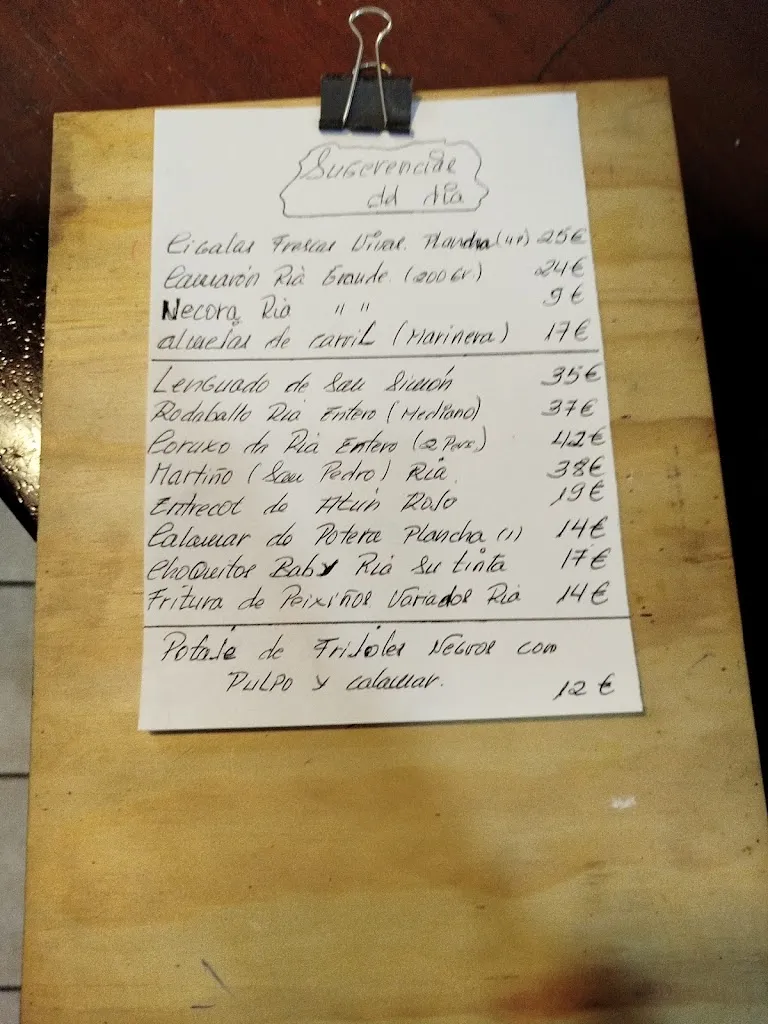 Sugerencias
del día
Cigalas Frescas Vivas. Plancha (4P) 25€
Camarón Ria Grande. (200 Gr.) 24€
Necora Ria " " 9€
almejas de carril (Marinera) 17€
Lenguado de San Simón 35€
Rodaballo Ria Entero (Mediano) 37€
Coruxo da Ria Entero (2 Pers.) 42€
Martiño (San Pedro) Ria. 38€
Entrecot de Atún Rojo 19€
Calamar de Potera Plancha (1) 14€
Choquitos Baby Ria Su tinta 17€
Fritura de Peixiños Variados Ria 14€
Potaje de Frijoles Negros con
Pulpo y calamar. 12€